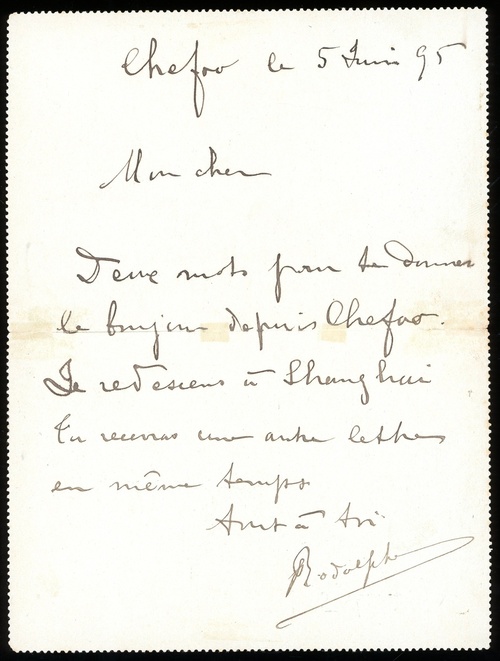 Chefoo le 5 Juin 95
Mon cher
Deux mots pour te donner
le bonjour depuis Chefoo.
Je redescens à Shanghai
Tu recevras une autre lettre
en même temps
Tout à toi
Rodolphe